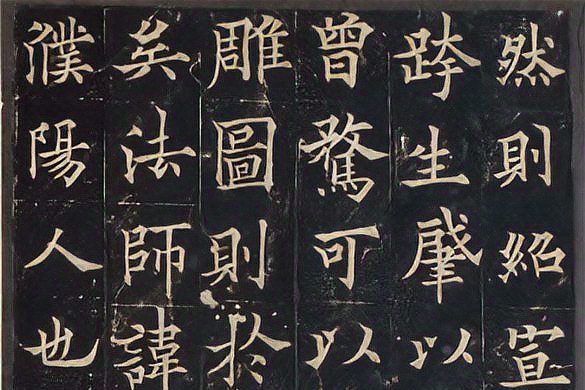 然則紹宣
跨生肈以
曾騖可以
雕圖則扵
矣法師諱
濮陽人也